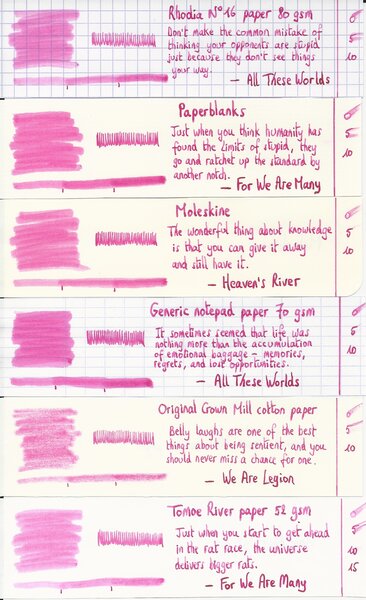 Rhodia N°16 paper 80 gsm
Don't make the common mistake of
thinking your opponents are stupid
just because they don't see things
your way.
— All These Worlds
0
5
10
Paperblanks
Just when you think humanity has
found the limits of stupid, they
go and ratchet up the standard by
another notch.
— For We Are Many
0
5
10
Moleskine
The wonderful thing about knowledge
is that you can give it away
and still have it.
— Heaven's River
0
5
10
Generic notepad paper 70 gsm
It sometimes seemed that life was
nothing more than the accumulation
of emotional baggage – memories,
regrets, and lost opportunities.
— All These Worlds
0
5
10
Original Crown Mill cotton paper
Belly laughs are one of the best
things about being sentient, and you
should never miss a chance for one.
— We Are Legion
0
5
10
Tomoe River paper 52 gsm
Just when you start to get ahead
in the rat race, the universe
delivers bigger rats.
— For We Are Many
0
5
10
15